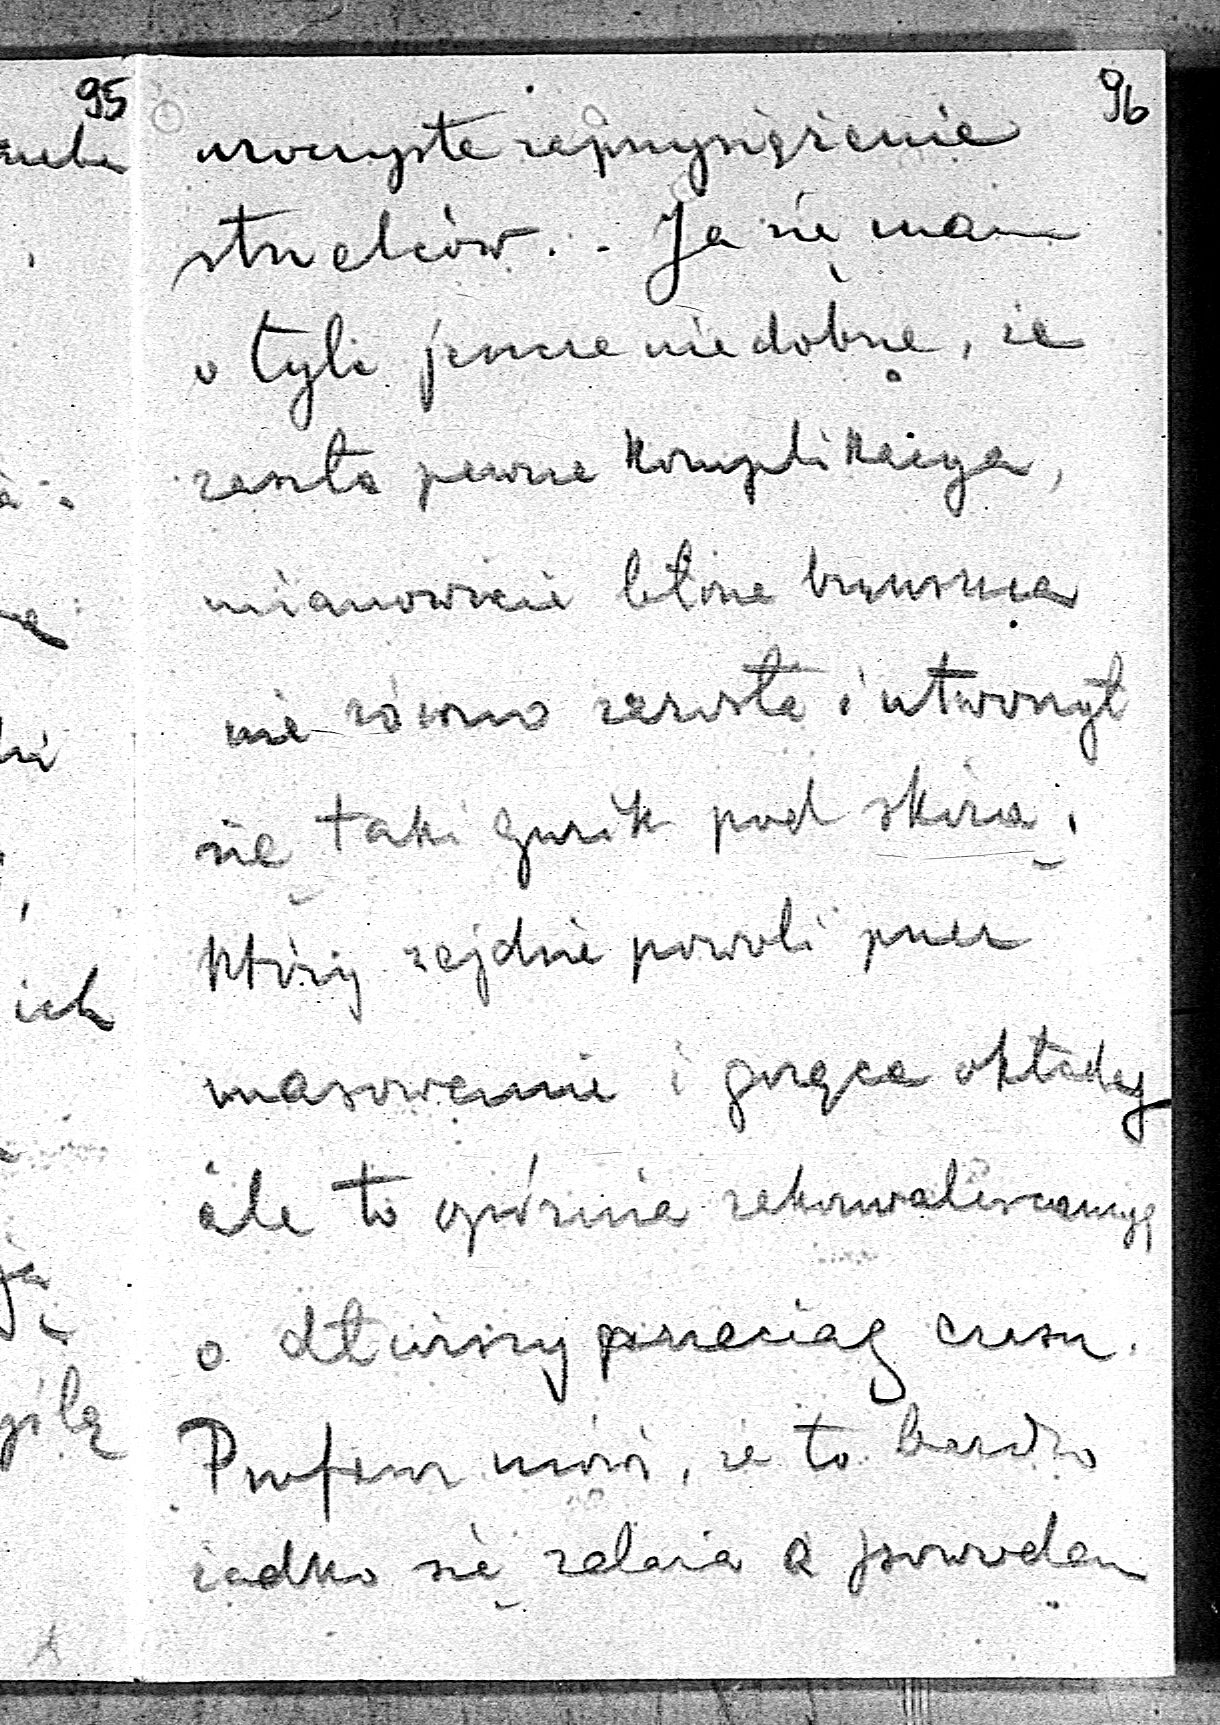 95
96
uroczyste zaprzysiężenie
strzelców. . Ja się mam
o tyle jeszcze niedobrze, że
zaszła pewna komplikacya,
mianowicie błona brzuszna
nie równo zarosła i utworzył
się taki guzik pod skórą,
który zejdzie powoli przez
masowanie i gorące okłady
ale to opóźnia rekonwalescencyę
o dłuższy przeciąg czasu.
Profesor mówi, że to bardzo
rzadko się zdarza a powodem
ich